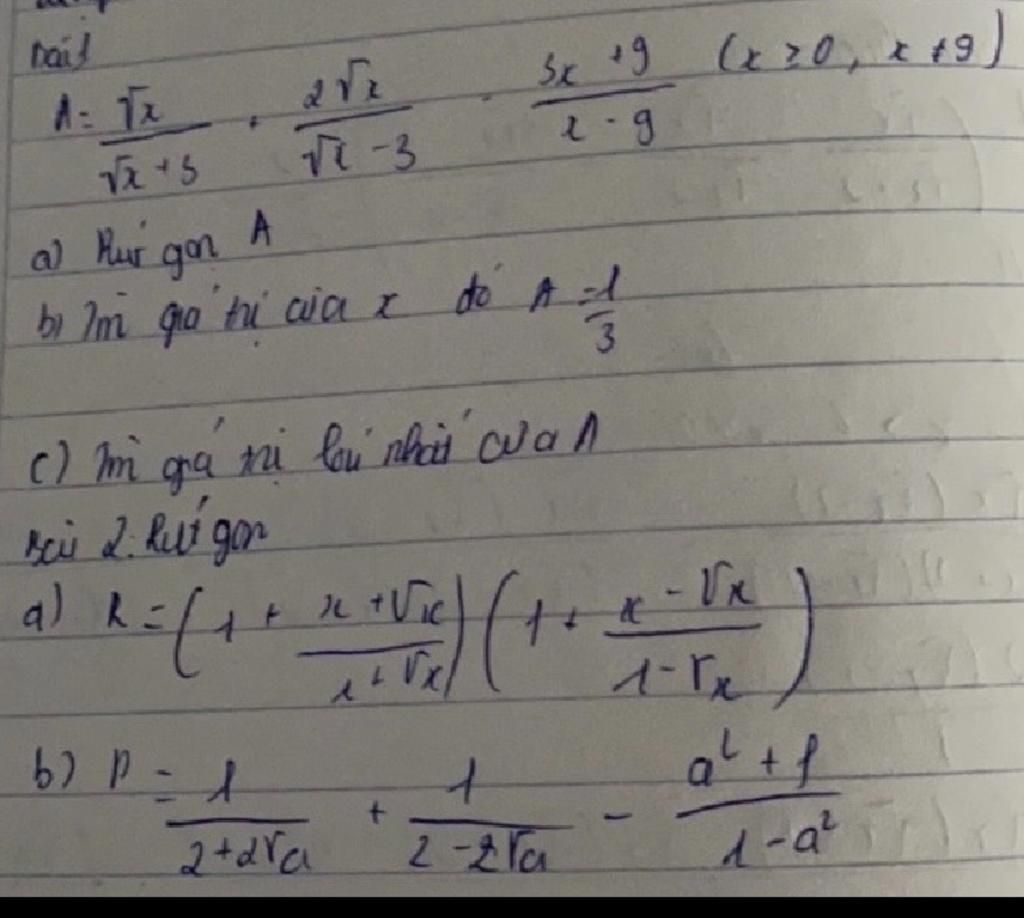 Bài 1
A = √x / (√x + 3) + 2√x / (√x - 3) - (3x + 9) / (x - 9) (x ≥ 0, x ≠ 9)
a) Rút gọn A
b) Tìm giá trị của x để A = 1/3
c) Tìm giá trị lớn nhất của A
Bài 2. Rút gọn
a) R = (1 + (x + √x) / (1 + √x)) (1 + (x - √x) / (1 - √x))
b) P = 1 / (2 + 2√a) + 1 / (2 - 2√a) - (a² + 1) / (1 - a²)